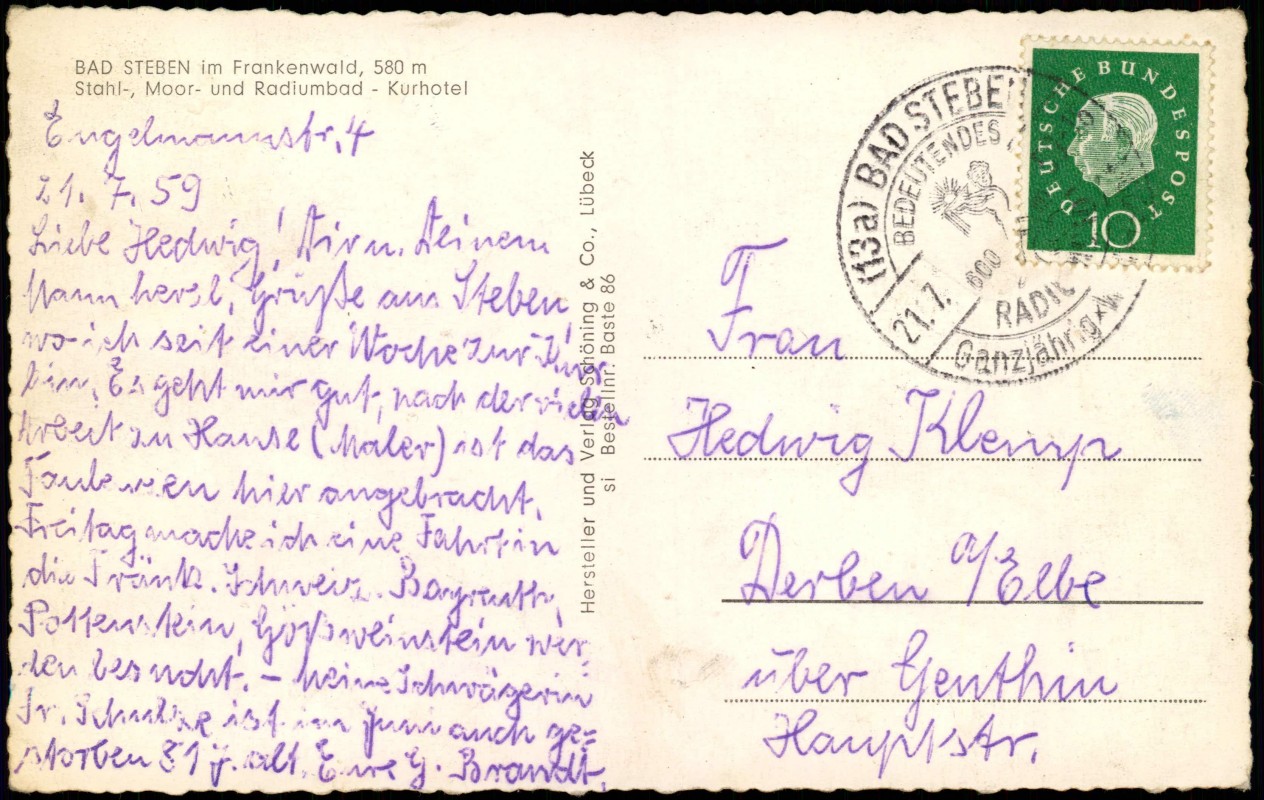 BAD STEBEN im Frankenwald, 580 m
Stahl-, Moor- und Radiumbad - Kurhotel
Engelmannstr. 4
21. 7. 59
Liebe Hedwig! Dir u. Deinem
Mann herzl. Grüße aus Steben,
wo ich seit einer Woche zur Kur
bin. Es geht mir gut, nach der vielen
Arbeit zu Hause (Maler) ist das
hier angebracht.
Freitag mache ich eine Fahrt in
die Fränk. Schweiz. Bayreuth,
Pottenstein, Gößweinstein wer-
den besucht. – Meine Schwägerin
Fr. Schulze ist im Juni auch ge=
storben 81 J. alt. Eure G. Brandt.
Hersteller und Verlag Schöning & Co., Lübeck
si Bestellnr. Baste 86
(13a) BAD STEBEN
BEDEUTENDES
21.7.
600
RADIU
Ganzjährig
DEUTSCHE BUNDESPOST
10
Frau
Hedwig Klemp
Derben a/Elbe
über Genthin
Hauptstr.